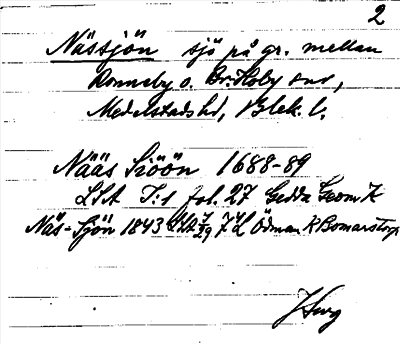 2
Nässjön sjö på gr. mellan
Ronneby o. Br. Hoby snr,
Medelstads hd, Blek. l.
Nääs Siöön 1688-89
LSA I:1 fol. 27 Gedda Geom K
Näs-Sjön 1843 LSA Ödman K Bomarstorp